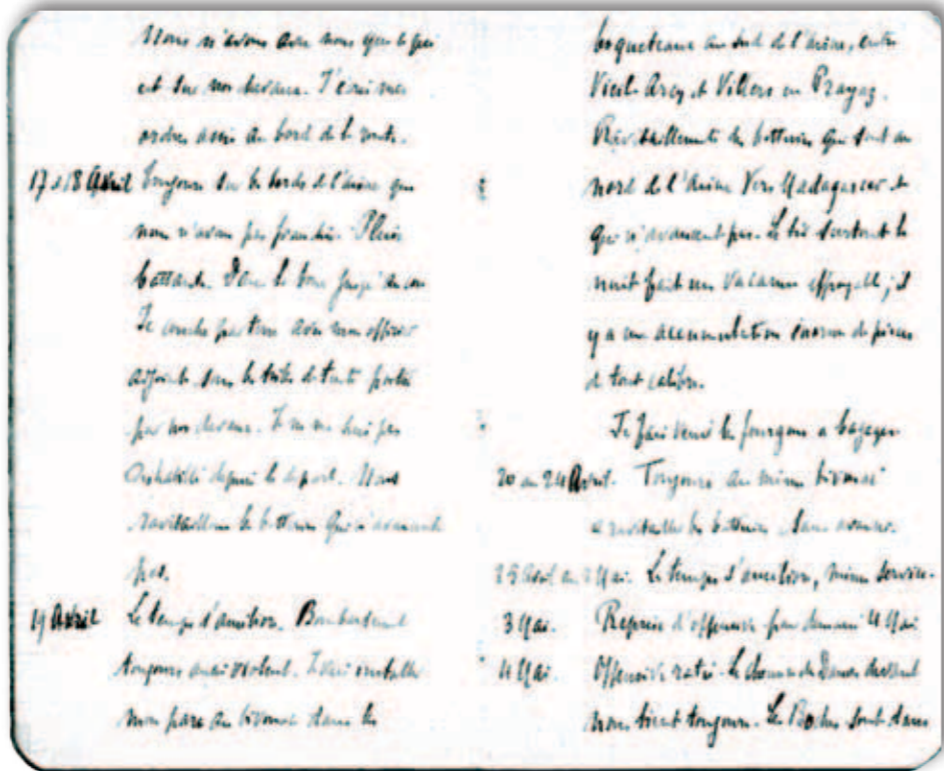 Nous n'avons avec nous que ce qui
est sur nos chevaux. J'écris mes
ordres assis au bord de la route.
17 et 18 Avril Toujours sur les bords de l'Aisne que
nous n'avons pas franchie. Pluie
battante. Dans la boue jusqu'au cou
Je couche par terre avec mon officier
adjoint sous les toiles de tente portées
par nos chevaux. Je ne me suis pas
déshabillé depuis le départ. Nous
ravitaillons les batteries qui n'avancent
pas.
19 Avril Le temps s'améliore. Bombardement
toujours aussi violent. J'ai installé
mon parc au bivouac dans les
boqueteaux au sud de l'Aisne, entre
Vieil-Arcy et Villers en Prayaz.
Ravitaillements des batteries qui sont au
nord de l'Aisne vers Madagascar et
qui n'avancent pas. Le tir surtout la
nuit fait un vacarme effroyable ; il
y a une accumulation de pièces
de tout calibre.
Je fais venir le fourgon à bagages
20 au 24 Avril. Toujours au même bivouac
à ravitailler les batteries sans avancer.
25 Avril au 2 Mai. Le temps s'améliore, même service.
3 Mai. Reprise d'offensive pour demain 4 Mai
4 Mai. Offensive ratée. Le chemin des Dames
nous tient toujours. Les Boches sont dans